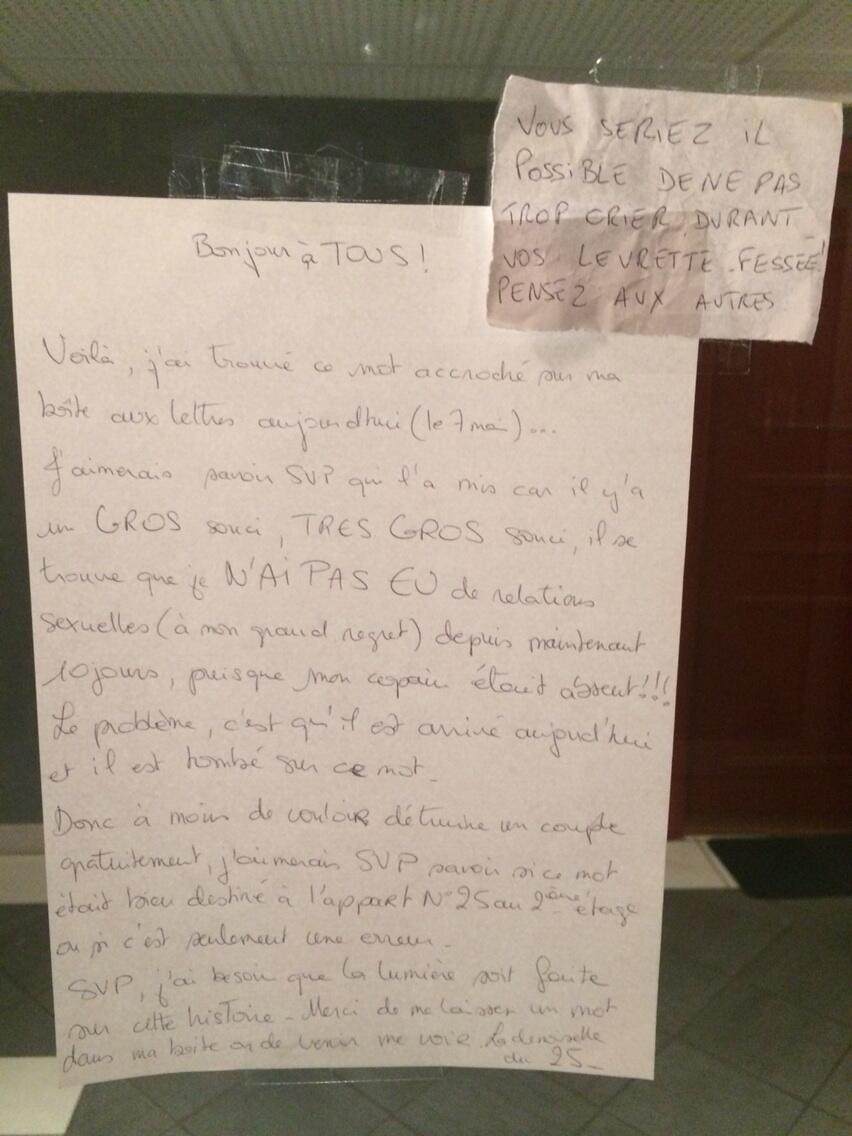 VOUS SERIEZ iL
POSSiBLE DE NE PAS
TROP CRIER DURANT
VOS LEVRETTE-FESSEÉ!
PENSEZ AUX AUTRES
Bonjour à TOUS!
Voilà, j'ai trouvé ce mot accroché sur ma
boîte aux lettres aujourd'hui (le 7 mai)...
J'aimerais savoir SVP qui l'a mis car il y'a
un GROS souci, TRES GROS souci, il se
trouve que je N'Ai PAS EU de relations
sexuelles (à mon grand regret) depuis maintenant
10 jours, puisque mon copain était absent!!!
Le problème, c'est qu'il est arrivé aujourd'hui
et il est tombé sur ce mot.
Donc à moins de vouloir détruire un couple
gratuitement, j'aimerais SVP savoir si ce mot
était bien destiné à l'appart N°25 au 2ième étage
ou si c'est seulement une erreur.
SVP, j'ai besoin que la lumière soit faite
sur cette histoire - Merci de me laisser un mot
dans ma boîte ou de venir me voir La demoiselle
du 25-